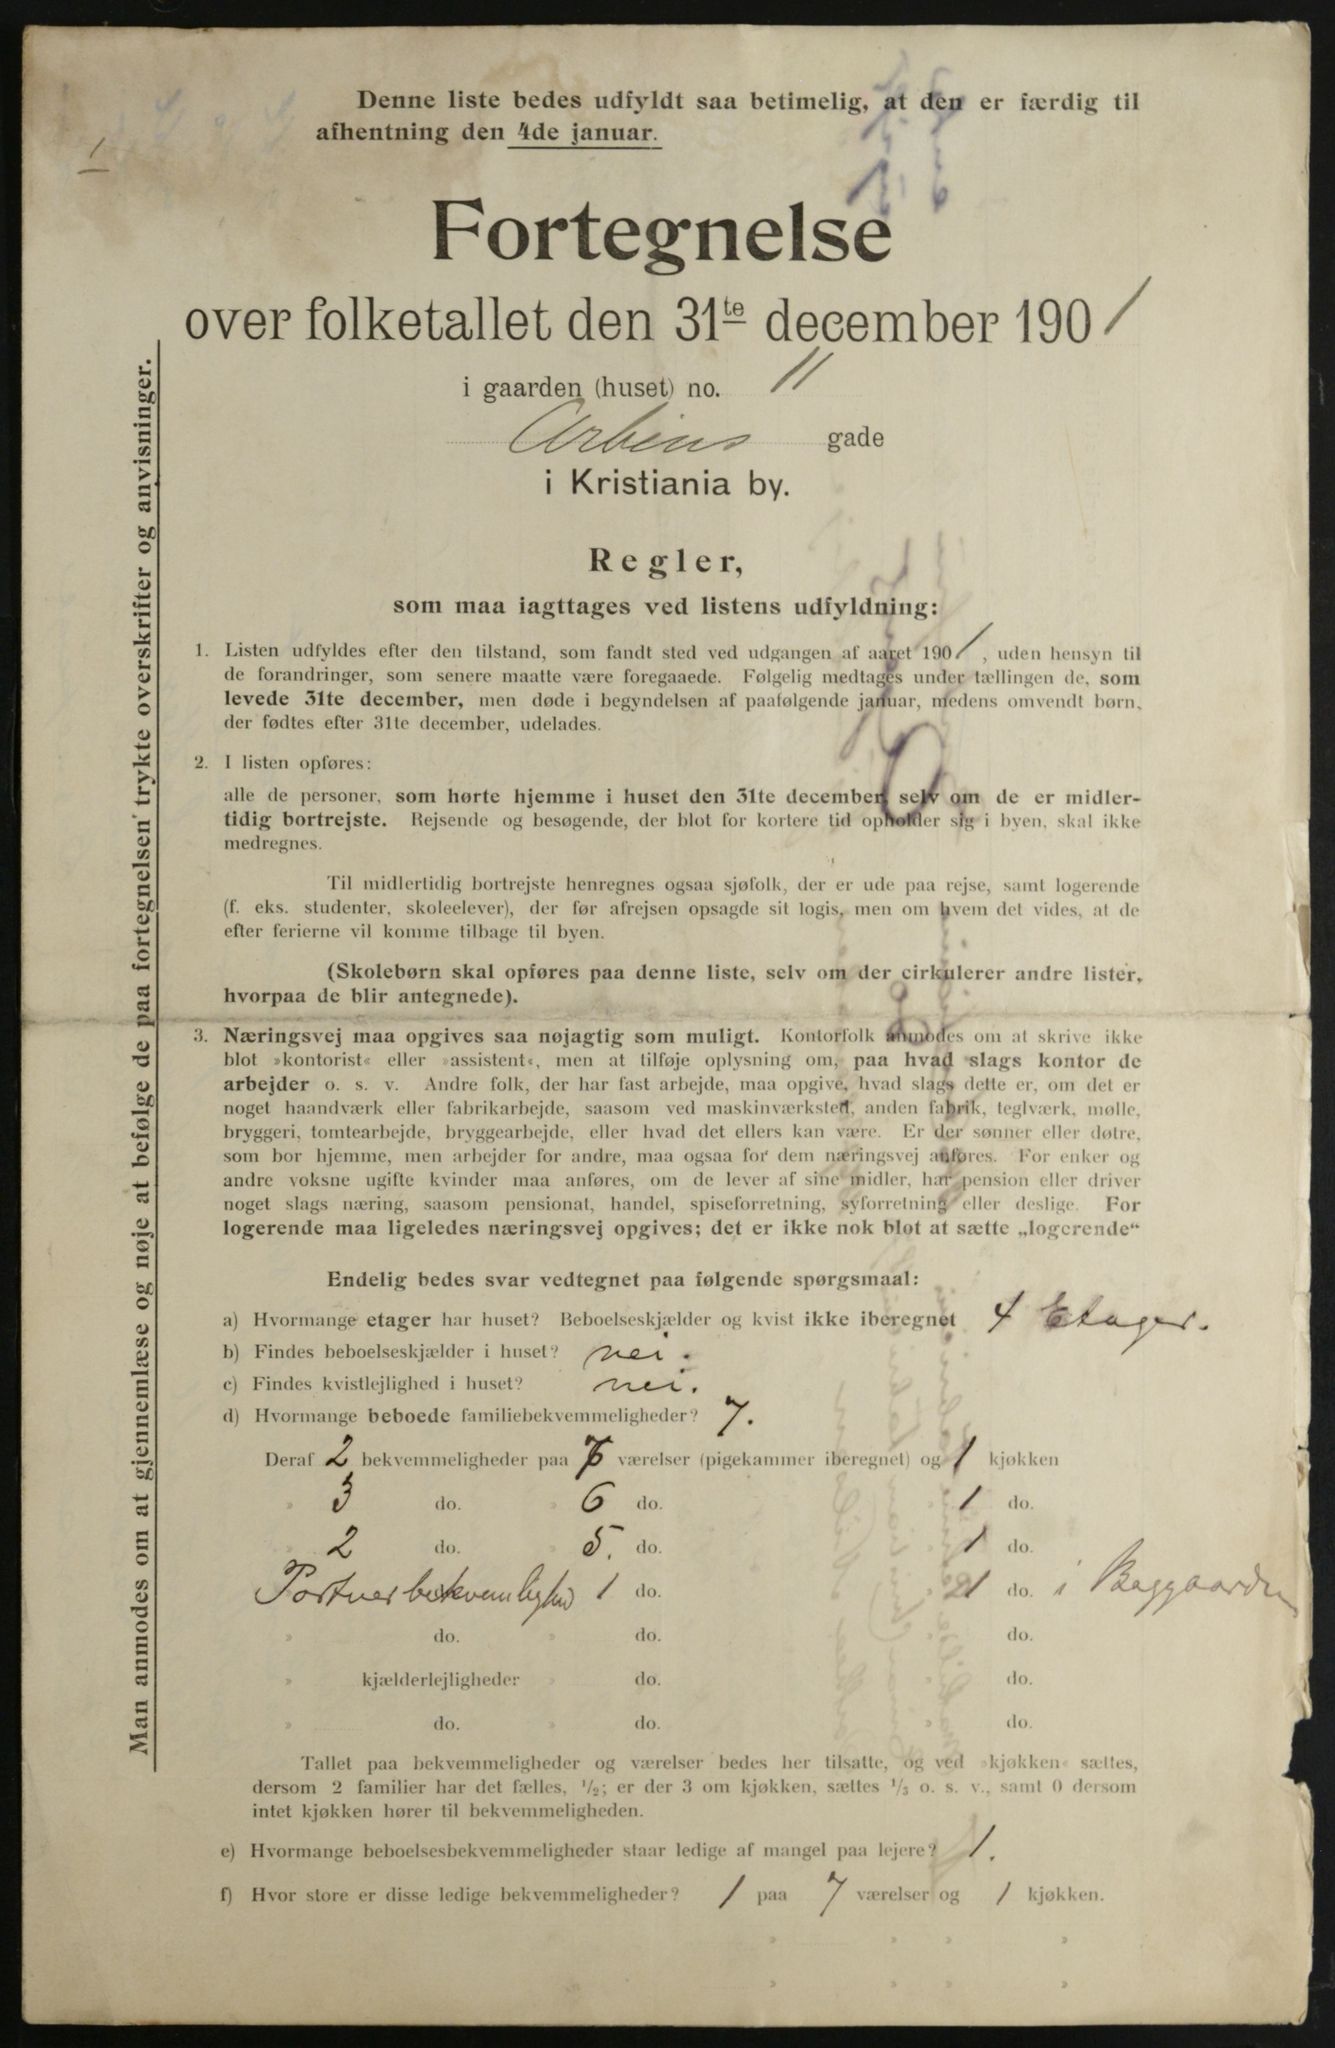 1
Denne liste bedes udfyldt saa betimelig, at den er færdig til
afhentning den 4de januar.
Fortegnelse
over folketallet den 31te december 1901
i gaarden (huset) no. 11
Arbiens gade
i Kristiania by.
Regler,
som maa iagttages ved listens udfyldning:
1. Listen udfyldes efter den tilstand, som fandt sted ved udgangen af aaret 1901, uden hensyn til
de forandringer, som senere maatte være foregaaede. Følgelig medtages under tællingen de, som
levede 31te december, men døde i begyndelsen af paafølgende januar, medens omvendt børn,
der fødtes efter 31te december, udelades.
2. I listen opføres:
alle de personer, som hørte hjemme i huset den 31te december, selv om de er midler-
tidig bortrejste. Rejsende og besøgende, der blot for kortere tid opholder sig i byen, skal ikke
medregnes.
Til midlertidig bortrejste henregnes ogsaa sjøfolk, der er ude paa rejse, samt logerende
(f. eks. studenter, skoleelever), der før afrejsen opsagde sit logis, men om hvem det vides, at de
efter ferierne vil komme tilbage til byen.
(Skolebørn skal opføres paa denne liste, selv om der cirkulerer andre lister,
hvorpaa de blir antegnede).
3. Næringsvej maa opgives saa nøjagtig som muligt. Kontorfolk anmodes om at skrive ikke
blot »kontorist« eller »assistent«, men at tilføje oplysning om, paa hvad slags kontor de
arbejder o. s. v. Andre folk, der har fast arbejde, maa opgive, hvad slags dette er, om det er
noget haandværk eller fabrikarbejde, saasom ved maskinværksted, anden fabrik, teglværk, mølle,
bryggeri, tomtearbejde, bryggearbejde, eller hvad det ellers kan være. Er der sønner eller døtre,
som bor hjemme, men arbejder for andre, maa ogsaa for dem næringsvej anføres. For enker og
andre voksne ugifte kvinder maa anføres, om de lever af sine midler, har pension eller driver
noget slags næring, saasom pensionat, handel, spiseforretning, syforretning eller deslige. For
logerende maa ligeledes næringsvej opgives; det er ikke nok blot at sætte „logerende“
Endelig bedes svar vedtegnet paa følgende spørgsmaal:
a) Hvormange etager har huset? Beboelseskjælder og kvist ikke iberegnet 4 Etager.
b) Findes beboelseskjælder i huset? nei.
c) Findes kvistlejlighed i huset? nei.
d) Hvormange beboede familiebekvemmeligheder? 7.
Deraf 2 bekvemmeligheder paa 7 værelser (pigekammer iberegnet) og 1 kjøkken
" 3 do. " 6 do. 1 do.
" 2 do. " 5. do. 1 do.
Portnerbekvemlighed 1 do. 1 do. i Baggaarden
" do. " do. " do.
" kjælderlejligheder " do. do.
" do. " do. " do.
Tallet paa bekvemmeligheder og værelser bedes her tilsatte, og ved »kjøkken« sættes,
dersom 2 familier har det fælles, 1/2; er der 3 om kjøkken, sættes 1/3 o. s. v., samt 0 dersom
intet kjøkken hører til bekvemmeligheden.
e) Hvormange beboelsesbekvemmeligheder staar ledige af mangel paa lejere? 1.
f) Hvor store er disse ledige bekvemmeligheder? 1 paa 7 værelser og 1 kjøkken.
" " "
" " "
Man anmodes om at gjennemlæse og nøje at befølge de paa fortegnelsen trykte overskrifter og anvisninger.